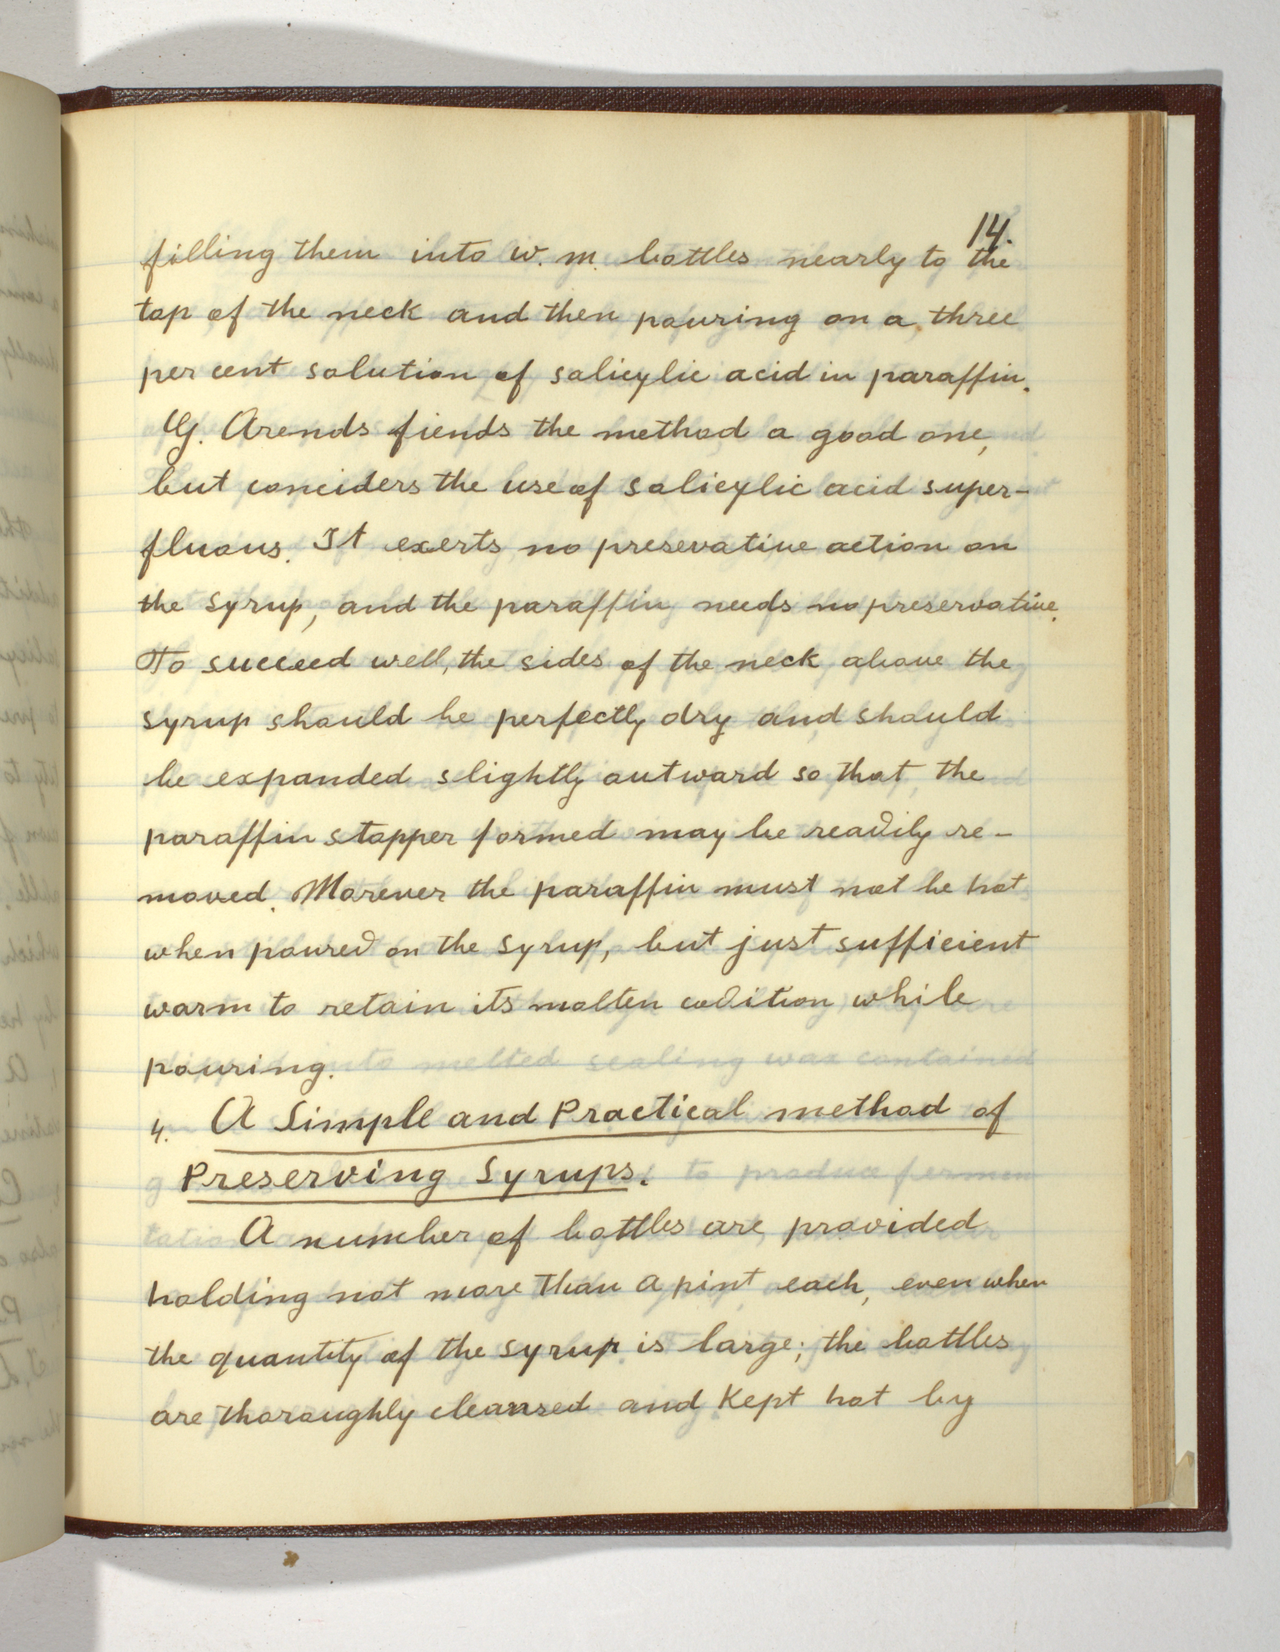 14.
filling them into w. m. bottles nearly to the
top of the neck and then pouring on a three
per cent solution of salicylic acid in paraffin.
G. Arends fiends the method a good one,
but conciders the use of salicylic acid super-
fluous. It exerts no presevative action on
the syrup, and the paraffin needs no preservative.
To succeed well, the sides of the neck above the
syrup should be perfectly dry and should
be expanded slightly outward so that the
paraffin stopper formed may be readily re-
moved. Morever the paraffin must not be hot
when poured on the syrup, but just sufficient
warm to retain its molten codition while
pouring.
4. A Simple and Practical method of
Preserving Syrups.
A number of bottles are provided
holding not more than a pint each, even when
the quantity of the syrup is large; the bottles
are thoroughly cleansed and kept hot by